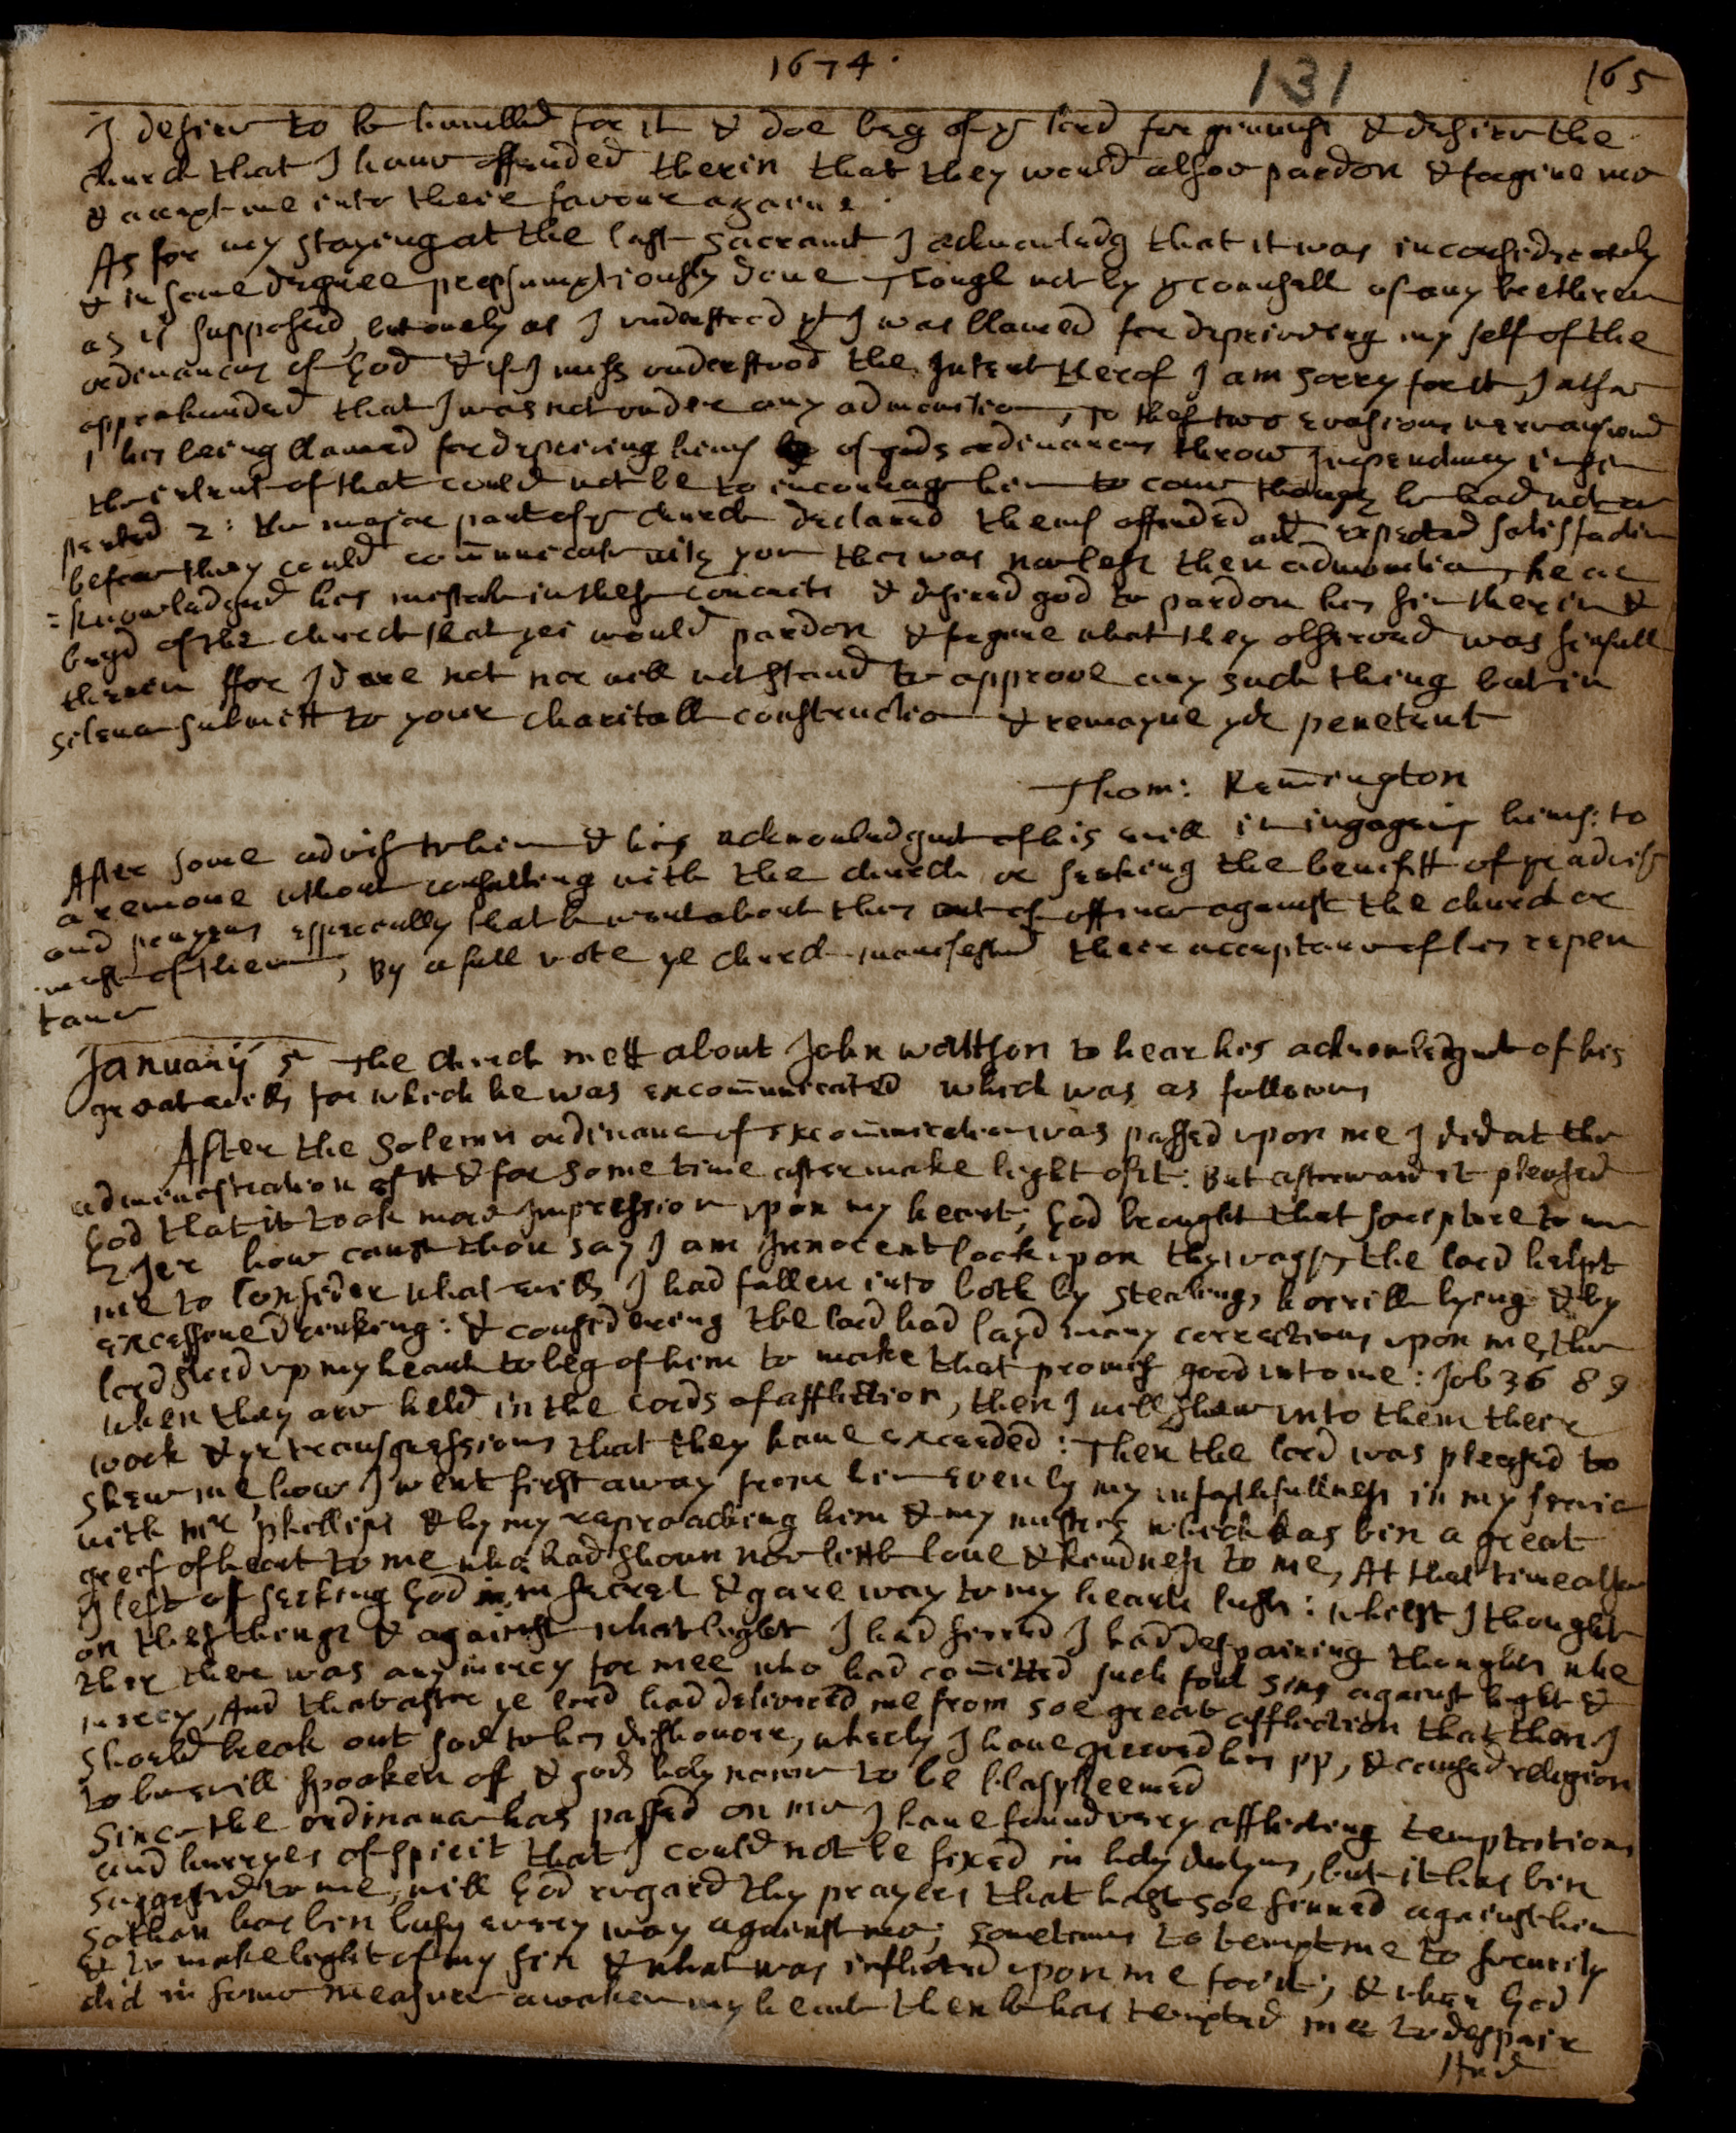 1674. 131 165
I desire to be humbled for it & doe beg of ye lord forgivness & desire the
church that I have offended therin that they would alsoe pardon & forgive me
& accept me into there favour againe.
As for my staying at the last sacramt I acknowledg that it was inconsideratly
& in some degree presumptiously done Though not by ye counsell of any bretheren
as is supposed, but onely as I understood yt I was blamed for depriveing my self of the
ordinances of God & if I miss understood the Intent therof I am sorry for it, I alsoe
apprehended that I was not under any admonition, To thes two evasions were answered
1 his being blamed for depriving hims of gods ordinances throw Inpenitency in sin
the intent of that could not be to incourage him to come though he had not re
pented 2: the major part of ye church declared thems offended and expected satisfaction
before they could comunicate with you this was noe less then admonition, he ac
=knowledged his mistake in thes conceits & desired god to pardon his sin therin &
begd of the church that yei would pardon & forgive what they observed was sinfull
therein ffor I dare not nor will not stand to approve any such thing but in
silence submitt to your charitall construction & remayne yor penetent
Thom: Remington
After some advis to him & his acknowledgmt of his evill in ingageing hims: to
a remove without consulting with the church or seeking the benifitt of ye advis
and prayers especcially that he went about this out of offence against the church or
most of them, By a full vote ye church manifested there acceptance of his repen
tance
January 5 The church mett about John wattson to hear his acknowledgmt of his
great evills for which he was excomunicated which was as followes
After the solemn ordinance of excomunication was passed upon me I did at the
administration of it & for some time after make light of it: But afterward it pleased
God that it took more Impression upon my heart; God brought that scripture to me
2 Jer how canst thou say I am Innocent look upon thy wayes, the lord helpt
me to Consider what evills I had fallen into both by stealing, horrible lying & by
excessive drinking: & considering the lord had layd many corrections upon me, the
lord stird up my heart to beg of him to make that promis good unto me: Job 36 8 9
when they are held in the cords of affliction, then I will shew unto them there
work & yr transgressions that they have exceeded: Then the lord was pleased to
shew me how I went first away from him even by my unfaythfullness in my service
with mr phillips & by my reproaching him & my mistres which has bin a great
greef of heart to me who had shown noe little love & kindness to me, At that time alsoe
I left of seeking God in secret & gave way to my hearts lusts: whilst I thought
on thes things & against what light I had sinned I had despairing thoughts whe
ther there was any mercy for mee who had comitted such foul sins against light &
mercy, And that after ye lord had delivered me from soe great affliction that then I
should break out soe to his dishonore, wherby I have greeved his pp, & caused religion
to be evill spooken of & gods holy name to be blasphemed
Since the ordinance has passed on me I have found very afflicting temptations
and hurryes of spirit that I could not be fixed in holy dutyes, but it has bin
suggested to me, will God regard thy prayers that hast soe sinned against him
Sathan has bin busy every way against me; sometimes to tempt me to security
& to make light of my sin & what was inflicted upon me for it; & when God
did in some measure awaken my heart then he has tempted mee to despair